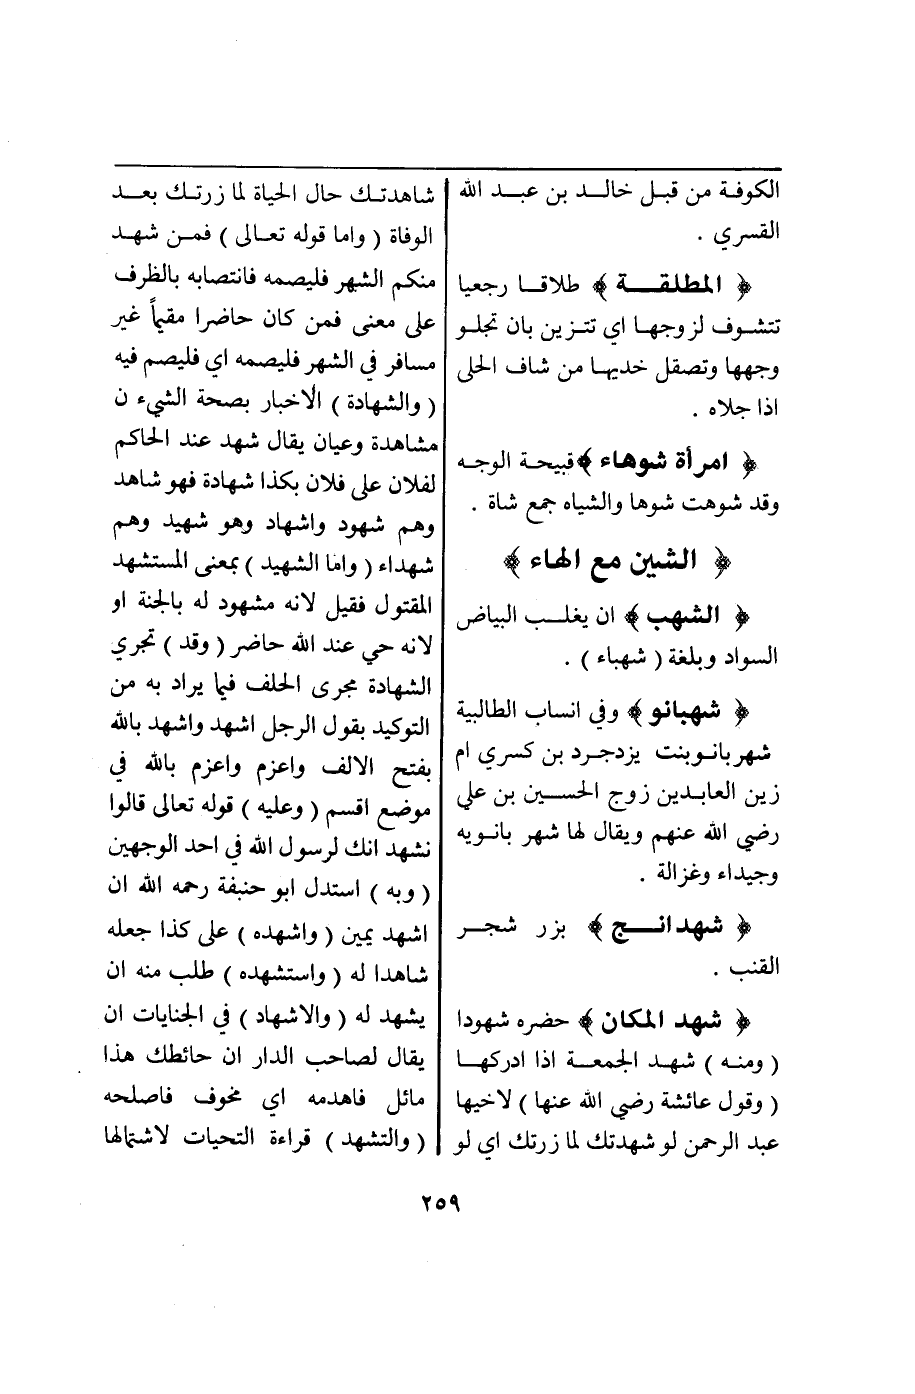 الكوفة من قبل خالد بن عبد الله
القسري .
﴿ المطلقة ﴾ طلاقا رجعيا
تتشوف لزوجها اي تتزين بان تجلو
وجهها وتصقل خديها من شاف الحلى
اذا جلاه .
﴿ امرأة شوهاء ﴾ قبيحة الوجه
وقد شوهت شوها والشياه جمع شاة .
﴿ الشين مع الهاء ﴾
﴿ الشهب ﴾ ان يغلب البياض
السواد وبلغة ( شهباء ) .
﴿ شهبانو ﴾ وفي انساب الطالبية
شهربانوبنت يزدجرد بن كسري ام
زين العابدين زوج الحسين بن علي
رضي الله عنهم ويقال لها شهر بانويه
وجيداء وغزالة .
﴿ شهدانج ﴾ بزر شجر
القنب .
﴿ شهد المكان ﴾ حضره شهودا
( ومنه ) شهد الجمعة اذا ادركها
( وقول عائشة رضي الله عنها ) لاخيها
عبد الرحمن لو شهدتك لما زرتك اي لو
شاهدتك حال الحياة لما زرتك بعد
الوفاة ( واما قوله تعالى ) فمن شهد
منكم الشهر فليصمه فانتصابه بالظرف
على معنى فمن كان حاضرا مقيماً غير
مسافر في الشهر فليصمه اي فليصم فيه
( والشهادة ) الاخبار بصحة الشيء ن
مشاهدة وعيان يقال شهد عند الحاكم
لفلان على فلان بكذا شهادة فهو شاهد
وهم شهود واشهاد وهو شهيد وهم
شهداء ( واما الشهيد ) بمعنى المستشهد
المقتول فقيل لانه مشهود له بالجنة او
لانه حي عند الله حاضر ( وقد ) تجري
الشهادة مجرى الحلف فيما يراد به من
التوكيد بقول الرجل اشهد واشهد بالله
بفتح الالف واعزم واعزم بالله في
موضع اقسم ( وعليه ) قوله تعالى قالوا
نشهد انك لرسول الله في احد الوجهين
( وبه ) استدل ابو حنيفة رحمه الله ان
اشهد يمين ( واشهده ) على كذا جعله
شاهدا له ( واستشهده ) طلب منه ان
يشهد له ( والاشهاد ) في الجنايات ان
يقال لصاحب الدار ان حائطك هذا
مائل فاهدمه اي مخوف فاصلحه
( والتشهد ) قراءة التحيات لاشتمالها
٢٥٩